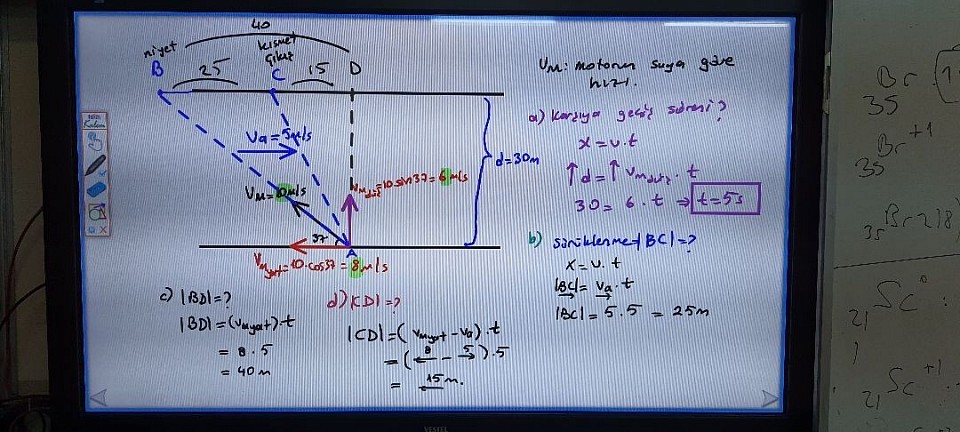 40
niyet
kısmet
çıkış
B
25
C
15
D
Va = 5m/s
Vm = 10m/s
Vm düş = 10 sin37 = 6m/s
d = 30m
37
A
Vm yat = 10.cos37 = 8m/s
Vm: motorun suya göre
hızı.
a) Karşıya geçiş süresi?
x = v.t
↑d = ↑Vm düş . t
30 = 6 . t ⇒ t = 5s
b) sürüklenme |BC| = ?
x = v.t
|BC| = Va . t
|BC| = 5.5 = 25m
c) |BD| = ?
|BD| = (Vm yat) . t
= 8 . 5
= 40m
d) |CD| = ?
|CD| = (Vm yat - Va) . t
= (8 - 5) . 5
= 15m.
Kalem
VESTEL
35 Br
35 Br +1
35 Br 2)8)
21 Sc
21 Sc +1